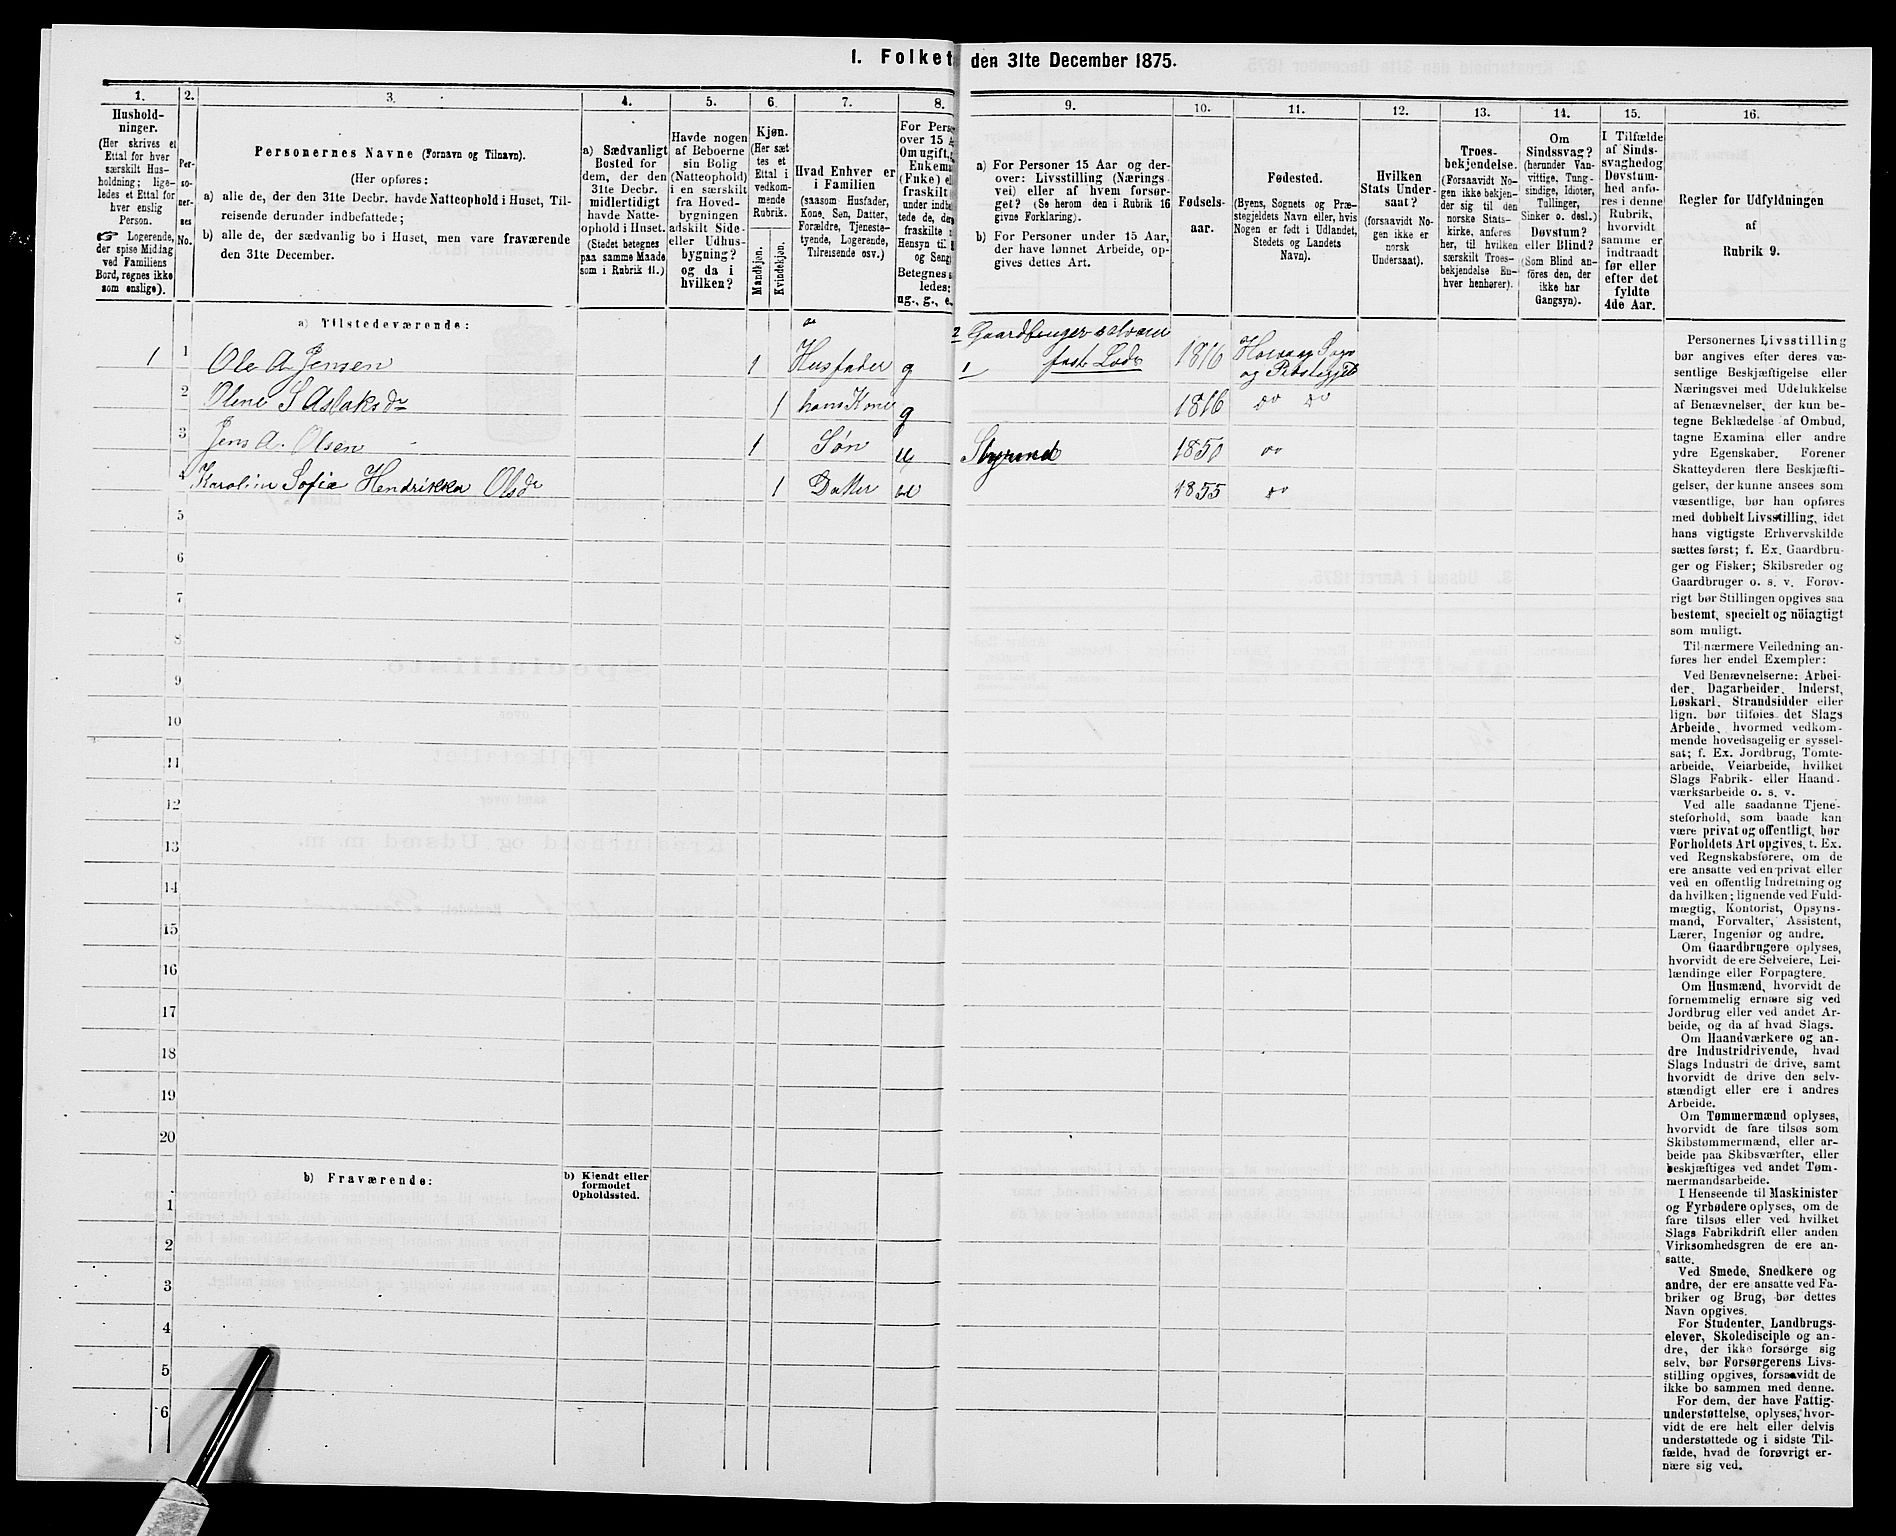 1. Folket
den 31te December 1875.
1.
Hushold-
ninger.
(Her skrives et
Ettal for hver
særskilt Hus-
holdning; lige-
ledes et Ettal for
hver enslig
Person.
☞ Logerende,
der spise Middag
ved Familiens
Bord, regnes ikke
som enslige).
2.
Per-
so-
ner-
nes
No.
3.
Personernes Navne (Fornavn og Tilnavn).
(Her opføres:
a) alle de, der den 31te Decbr. havde Natteophold i Huset, Til-
reisende derunder indbefattede;
b) alle de, der sædvanlig bo i Huset, men vare fraværende
den 31te December.
4.
a) Sædvanligt
Bosted for
dem, der den
31te Decbr.
midlertidigt
havde Natte-
ophold i Huset.
(Stedet betegnes
paa samme Maade
som i Rubrik 11.)
5.
Havde nogen
af Beboerne
sin Bolig
(Natteophold)
i en særskilt
fra Hoved-
bygningen
adskilt Side-
eller Udhus-
bygning?
og da i
hvilken?
6.
Kjøn.
(Her sæt-
tes et
Ettal i
vedkom-
mende
Rubrik.
Mandkjøn.
Kvindekjøn.
7.
Hvad Enhver er
i Familien
(saasom Husfader,
Kone, Søn, Datter,
Forældre, Tjeneste-
tyende, Logerende,
Tilreisende osv.)
8.
For Perso
over 15 A
Om ugift,
Enkema
(Fnke) e
fraskilt
under indbe
tede de, der
fraskilte
Hensyn til
og Seng
Betegnes s
ledes:
ug., g., e.
9.
a) For Personer 15 Aar og der-
over: Livsstilling (Nærings-
vei) eller af hvem forsør-
get? (Se herom den i Rubrik 16
givne Forklaring).
b) For Personer under 15 Aar,
der have lønnet Arbeide, op-
gives dettes Art.
10.
Fødsels-
aar.
11.
Fødested.
(Byens, Sognets og Præ-
stegjeldets Navn eller, hvis
Nogen er født i Udlandet,
Stedets og Landets
Navn).
12.
Hvilken
Stats Under-
saat?
(forsaavidt No-
gen ikke er
norsk
Undersaat).
13.
Troes-
bekjendelse.
(Forsaavidt No-
gen ikke bekjen-
der sig til den
norske Stats-
kirke, anføres
her, til hvilken
særskilt Troes-
bekjendelse En-
hver henhører).
14.
Om
Sindssvag?
(herunder Van-
vittige, Tung-
sindige, Idioter,
Tullinger,
Sinker o. desl.)
Døvstum?
eller Blind?
(Som Blind an-
føres den, der
ikke har
Gangsyn).
15.
I Tilfælde
af Sinds-
svaghedog
Døvstum-
hed anfø-
res i denne
Rubrik,
hvorvidt
samme er
indtraadt
før eller
efter det
fyldte
4de Aar.
16.
Regler for Udfyldningen
af
Rubrik 9.
a) Tilstedeværende:
1 1 Ole A Jensen 1 Husfader g
2 Gaardbruger selveier
1 fast Lods 1816 Høivaag Sogn
og Præstegjeld
2 Olene S Aslaksdr 1 hans Kone g 1816 do do
3 Jens A. Olsen 1 Søn u Styrmand 1850 do
4 Karolin Sofie Hendrikka Olsdr 1 Datter u 1855 do
5
6
7
8
9
10
11
12
13
14
15
16
17
18
19
20
b) Fraværende:
b) Kjendt eller
formodet
Opholdssted.
1
2
3
4
5
6
Personernes Livsstilling
bør angives efter deres væ-
sentlige Beskjæftigelse eller
Næringsvei med Udelukkelse
af Benævnelser, der kun be-
tegne Beklædelse af Ombud,
tagne Examina eller andre
ydre Egenskaber. Forener
Skatteyderen flere Beskjæfti-
gelser, der kunne ansees som
væsentlige, bør han opføres
med dobbelt Livsstilling, idet
hans vigtigste Erhvervskilde
sættes først; f. Ex. Gaardbru-
ger og Fisker; Skibsreder og
Gaardbruger o. s. v. Forøv-
rigt bør Stillingen opgives saa
bestemt, specielt og nöiagtigt
som muligt.
Til nærmere Veiledning an-
føres her endel Exempler:
Ved Benævnelserne: Arbei-
der, Dagarbeider, Inderst,
Løskarl, Strandsidder eller
lign. bør tilføies det Slags
Arbeide, hvormed vedkom-
mende hovedsagelig er syssel-
sat; f. Ex. Jordbrug, Tomte-
arbeide, Veiarbeide, hvilket
Slags Fabrik- eller Haand-
værksarbeide o. s. v.
Ved alle saadanne Tjene-
steforhold, som baade kan
være privat og offentligt, bør
Forholdets Art opgives, t. Ex.
ved Regnskabsførere, om de
ere ansatte ved en privat eller
ved en offentlig Indretning og
da hvilken; lignende ved Fuld-
mægtig, Kontorist, Opsyns-
mand, Forvalter, Assistent,
Lærer, Ingeniør og andre.
Om Gaardbrugere oplyses,
hvorvidt de ere Selveiere, Lei-
lændinge eller Forpagtere.
Om Husmænd, hvorvidt de
fornemmelig ernære sig ved
Jordbrug eller ved andet Ar-
beide, og da af hvad Slags.
Om Haandværkere og an-
dre Industridrivende, hvad
Slags Industri de drive, samt
hvorvidt de drive den selv-
stændigt eller ere i andres
Arbeide.
Om Tømmermænd oplyses,
hvorvidt de fare tilsøs som
Skibstømmermænd, eller ar-
beide paa Skibsværfter, eller
beskjæftiges ved andet Tøm-
mermandsarbeide.
I Henseende til Maskinister
og Fyrbødere oplyses, om de
fare tilsøs eller ved hvilket
Slags Fabrikdrift eller anden
Virksomhedsgren de ere an-
satte.
Ved Smede, Snedkere og
andre, der ere ansatte ved Fa-
briker og Brug, bør dettes
Navn opgives.
For Studenter, Landbrugs-
elever, Skoledisciple og an-
dre, der ikke forsørge sig
selv, bør Forsørgerens Livs-
stilling opgives, forsaavidt de
ikke bo sammen med denne.
For dem, der have Fattig-
understøttelse, oplyses, hvor-
vidt de ere helt eller delvis
understøttede og i sidste Til-
fælde, hvad de forøvrigt er-
nære sig ved.